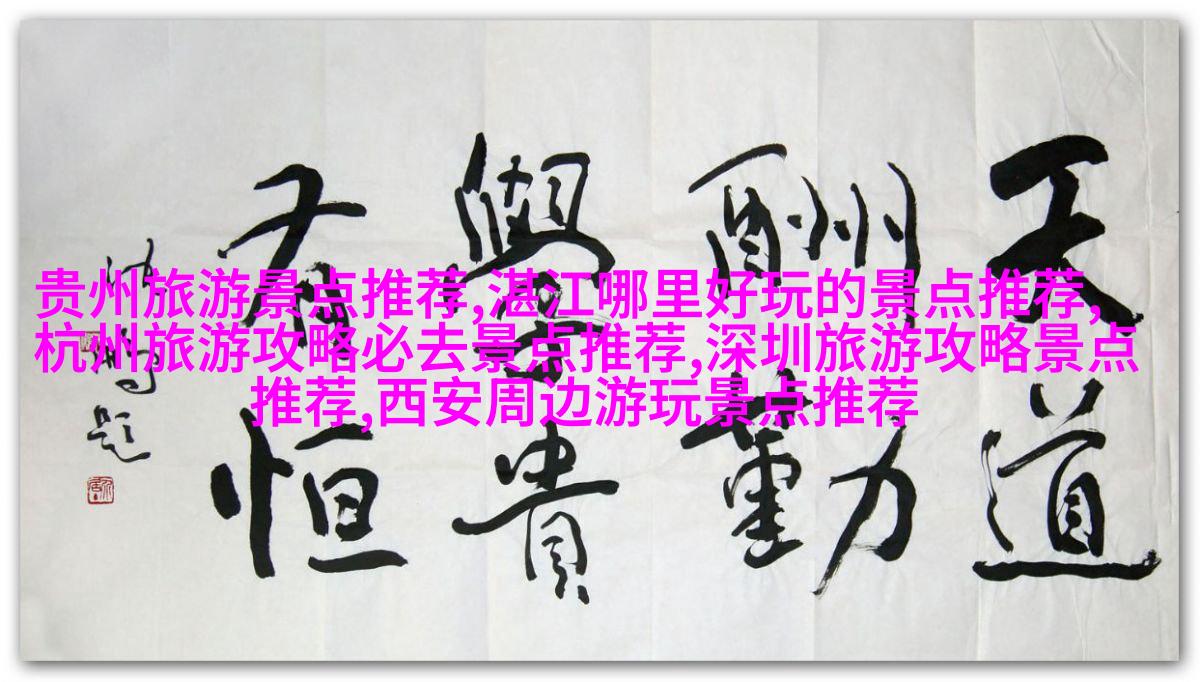 天道
酬勤
学贵
有恒
沈鹏题
贵州旅游景点推荐,湛江哪里好玩的景点推荐,
杭州旅游攻略必去景点推荐,深圳旅游攻略景点
推荐,西安周边游玩景点推荐